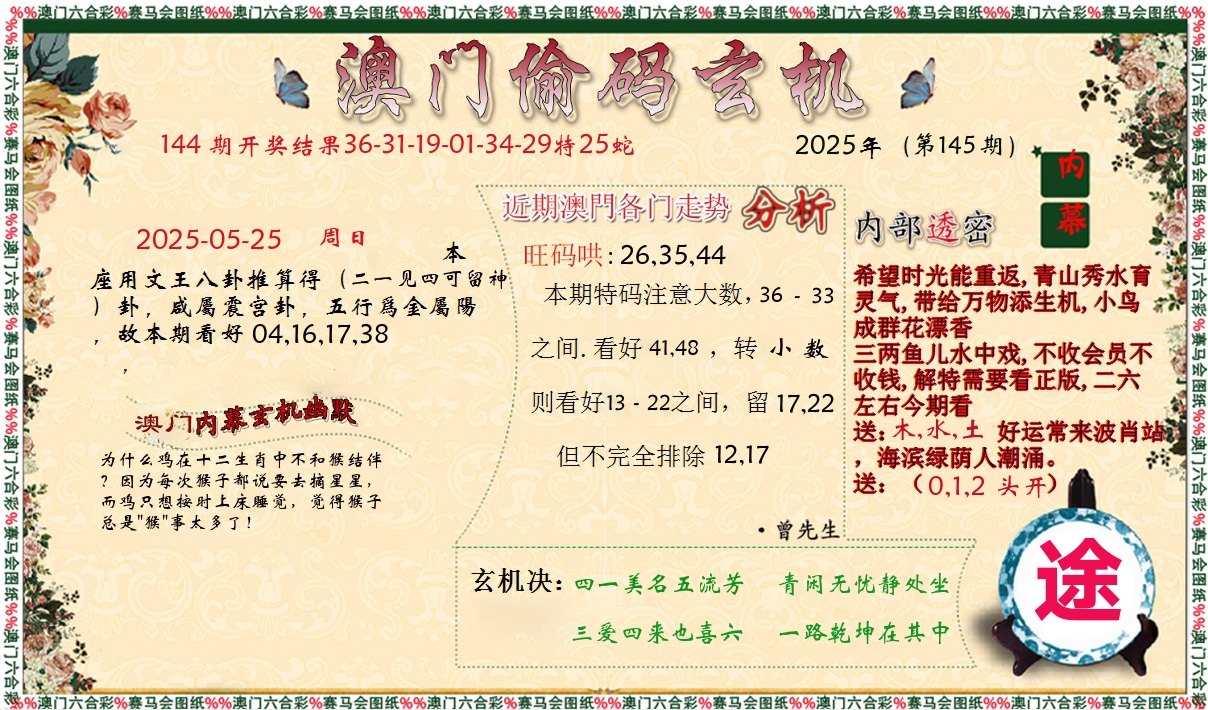 %%澳门六合彩%赛马会图纸%%澳门六合彩%赛马会图纸%%澳门六合彩%赛马会图纸%%澳门六合彩%赛马会图纸%%澳门六合彩%赛马会图纸%%澳门六合彩%赛马会图纸%%
澳门偷码玄机
144 期开奖结果36-31-19-01-34-29特25蛇
2025年（第145期）
内幕
2025-05-25 周日
本
座用文王八卦推算得（二一见四可留神
）卦，咸屬震宫卦，五行爲金屬陽
，故本期看好 04,16,17,38
，
澳门内幕玄机幽默
为什么鸡在十二生肖中不和猴结伴
？因为每次猴子都说要去摘星星，
而鸡只想按时上床睡觉，觉得猴子
总是"猴"事太多了！
近期澳門各门走势 分析
旺码哄: 26,35,44
本期特码注意大数，36 - 33
之间. 看好 41,48 ，转 小 数
则看好13 - 22之间，留 17,22
但不完全排除 12,17
·曾先生
内部透密
希望时光能重返, 青山秀水育
灵气, 带给万物添生机, 小鸟
成群花漂香
三两鱼儿水中戏, 不收会员不
收钱, 解特需要看正版, 二六
左右今期看
送: 木,水,土 好运常来波肖站
，海滨绿荫人潮涌。
送: （0,1,2 头开）
玄机决: 四一美名五流芳 青闲无忧静处坐
三爱四来也喜六 一路乾坤在其中
途
%%澳门六合彩%赛马会图纸%%澳门六合彩%赛马会图纸%%澳门六合彩%赛马会图纸%%澳门六合彩%赛马会图纸%%澳门六合彩%赛马会图纸%%澳门六合彩%赛马会图纸%%